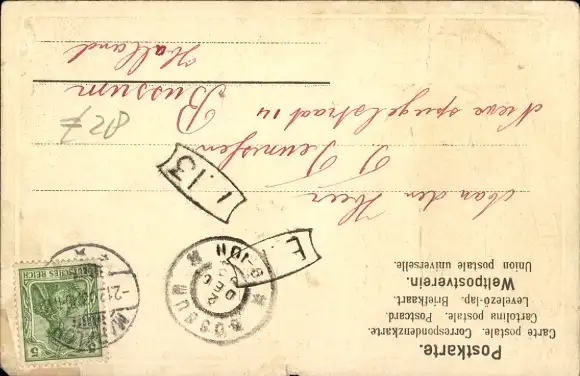 Postkarte.
Carte postale. Correspondenzkarte.
Cartolina postale. Postcard.
Levelező-lap. Briefkaart.
Weltpostverein.
Union postale universelle.
Aan den Heer
T. Teunissen
Nieuwe spiegelstraat 14
Bussum
Holland
f 28
1.13
E.
BUSSUM
2 DEC
DEUTSCHES REICH
5